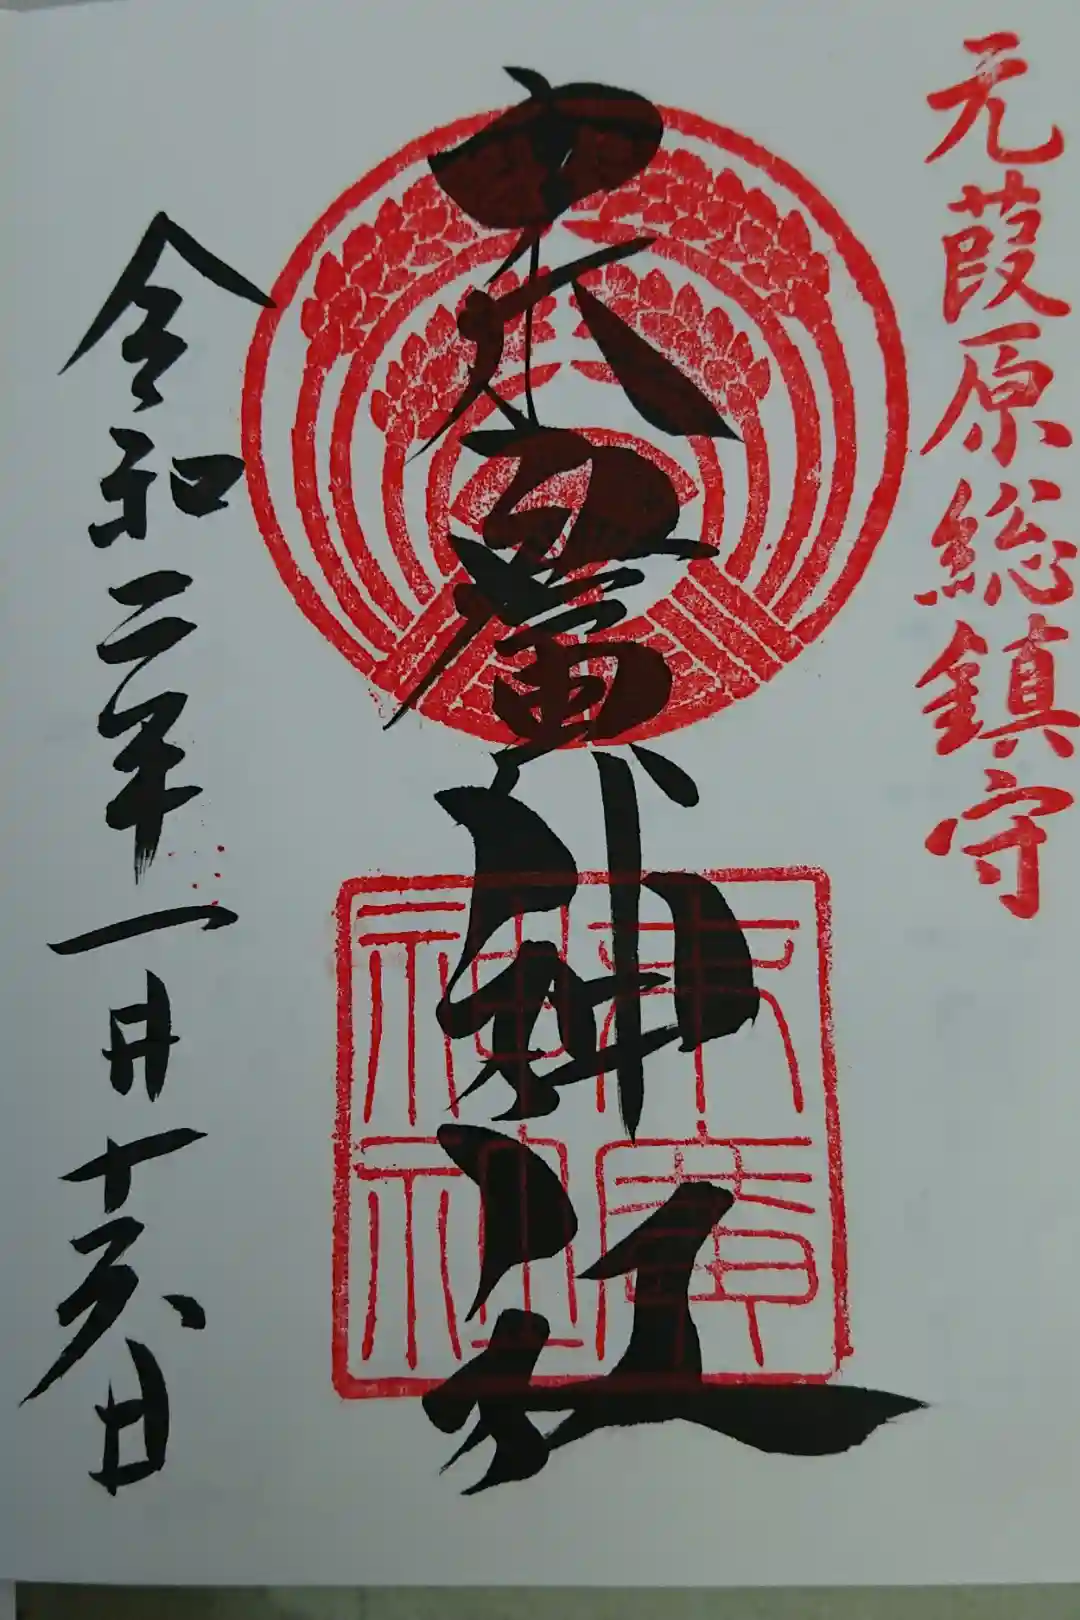 元葭原総鎮守
末廣神社
令和二年一月十六日
末廣
神社